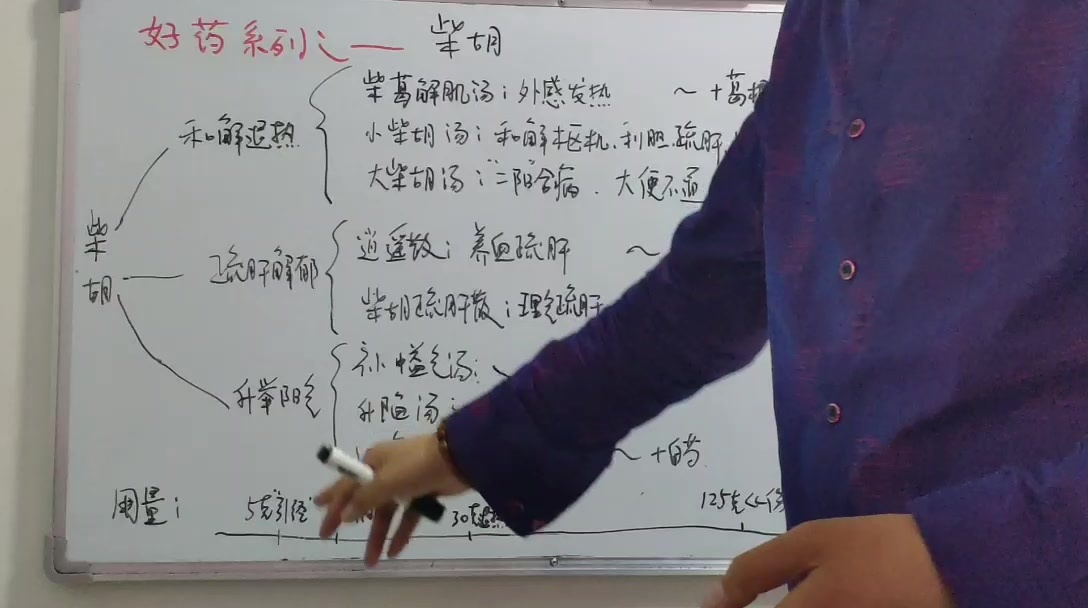 好药系列之一 柴胡
柴葛解肌汤:外感发热 ~+葛根
和解退热
小柴胡汤:和解枢机、利胆疏肝
大柴胡汤:二阳合病.大便不通
柴胡
疏肝解郁
逍遥散:养血疏肝 ~
柴胡疏肝散:理气疏肝
升举阳气
补中益气汤:~
升陷汤:
~+白芍
用量: 5克"引经" 30克退热 125克